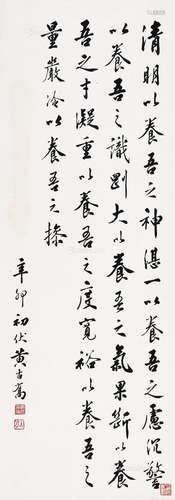 清明以養吾之神湛一以養吾之慮沉警
以養吾之識剛大以養吾之氣果斷以養
吾之才凝重以養吾之度寬裕以養吾之
量嚴冷以養吾之操
辛卯初伏黄古嵩